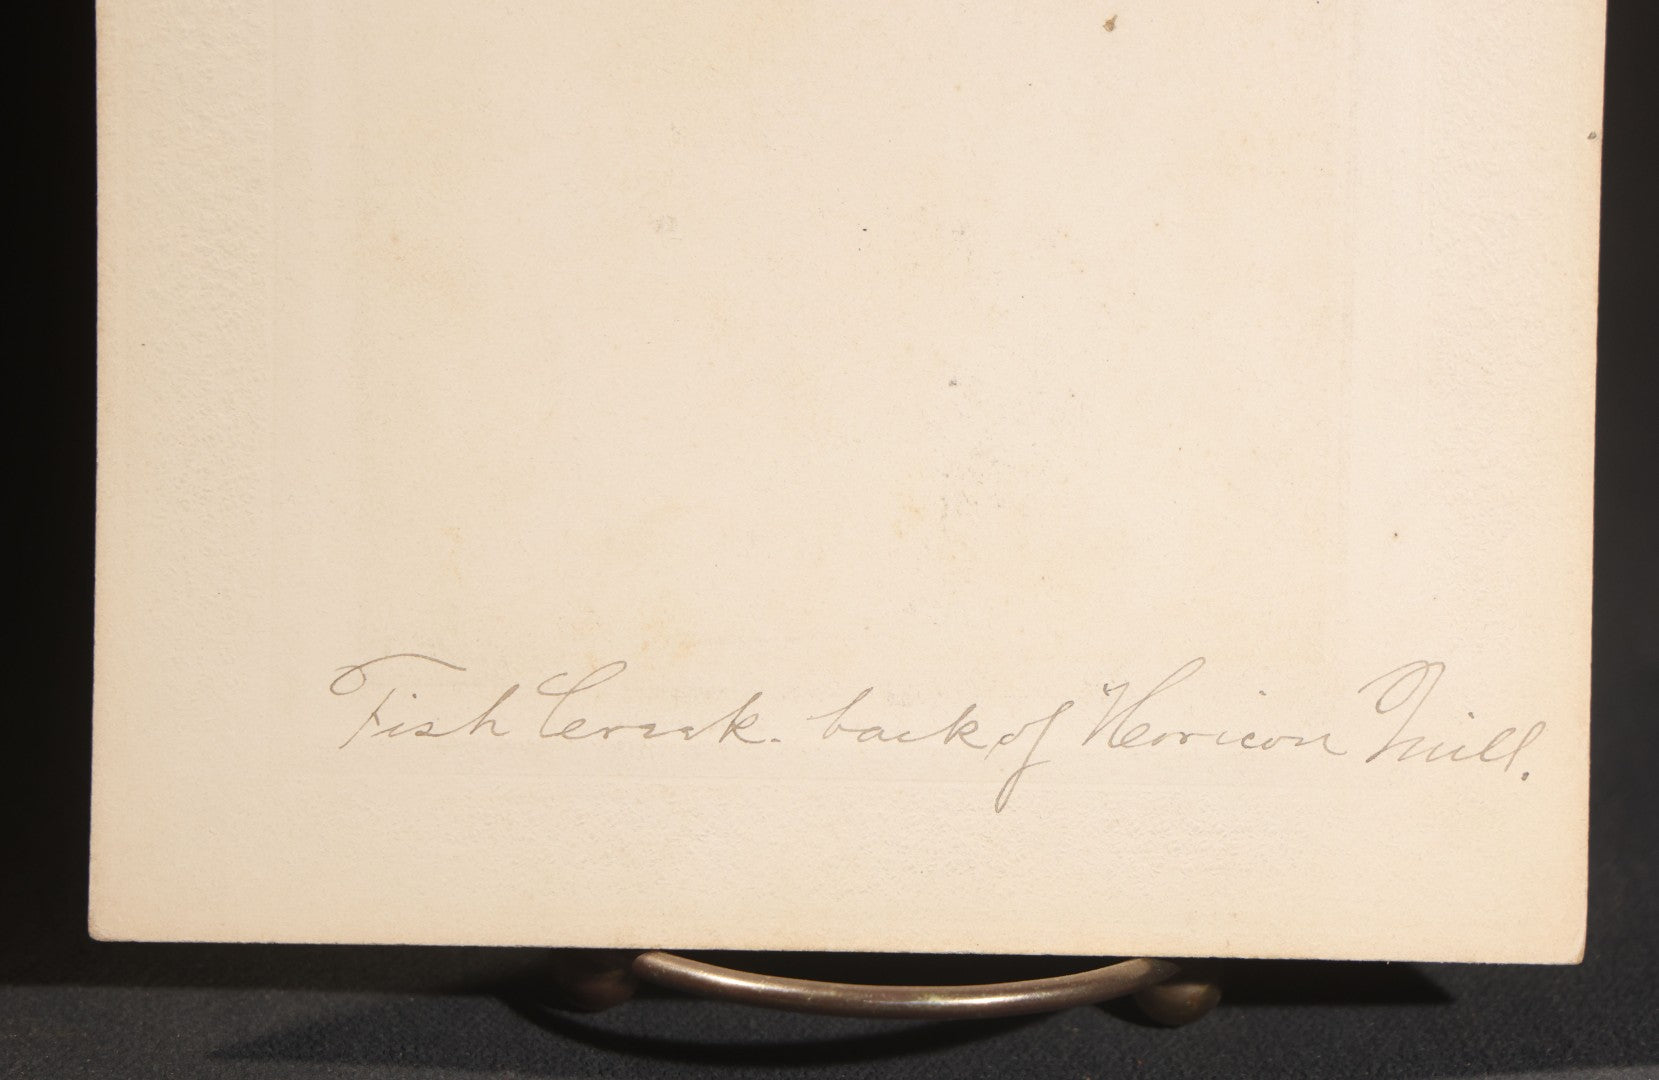 Fish Creek. back of Horicon Mill.